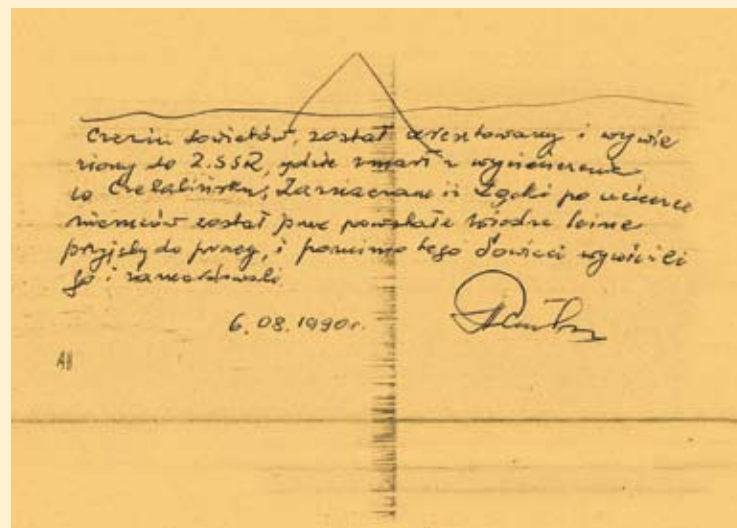 sowietów, został aresztowany i wywie
ziony do Z.S.S.R, gdzie zmarł z wycieńczenia
w Czelabińsku, Zaznaczam iż Łącki po ucieczce
niemców został przez powstałe władze leśne
przyjęty do pracy, i pomimo tego Sowieci wywieźli
go i zamordowali.
6.08.1990r.
A8